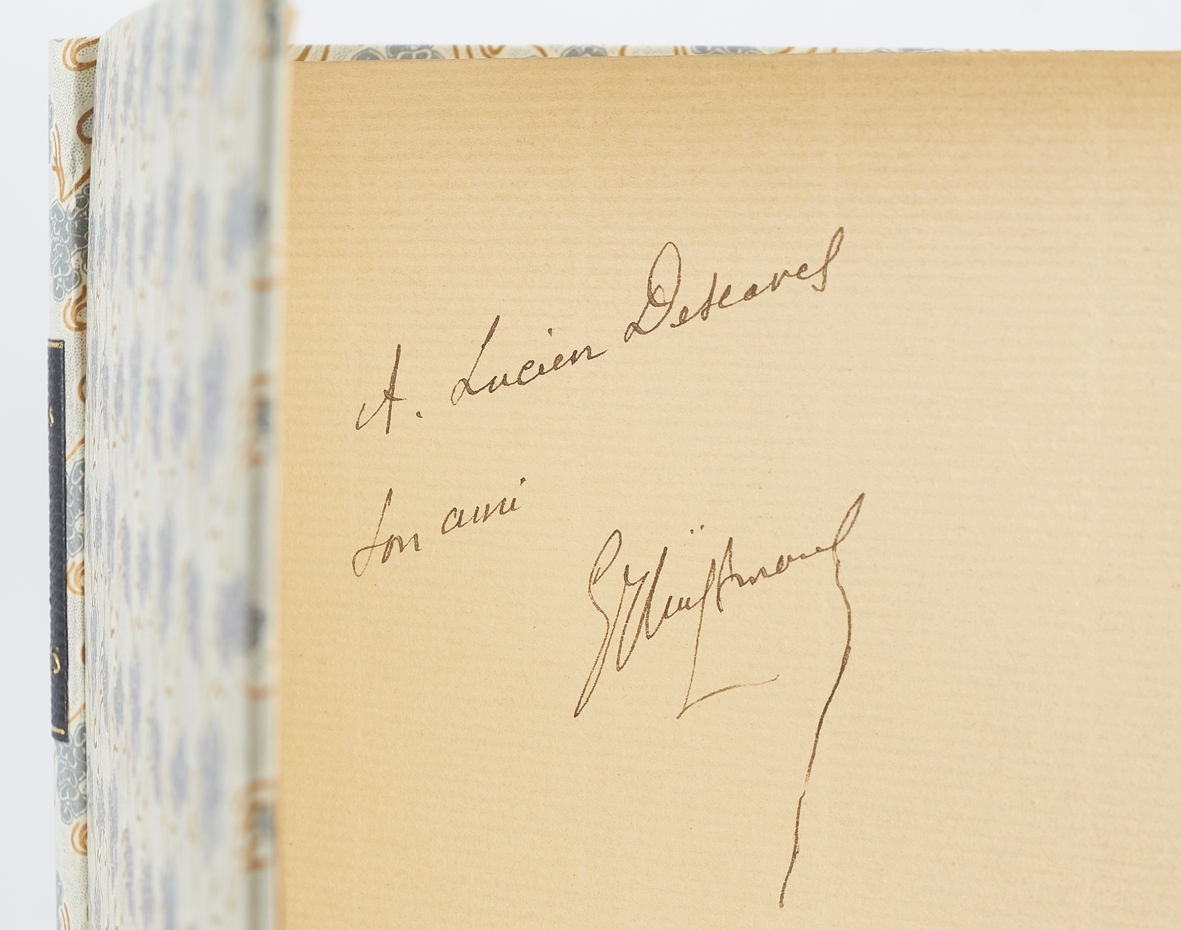 A. Lucien Descaves
son ami
GHuÿsmans